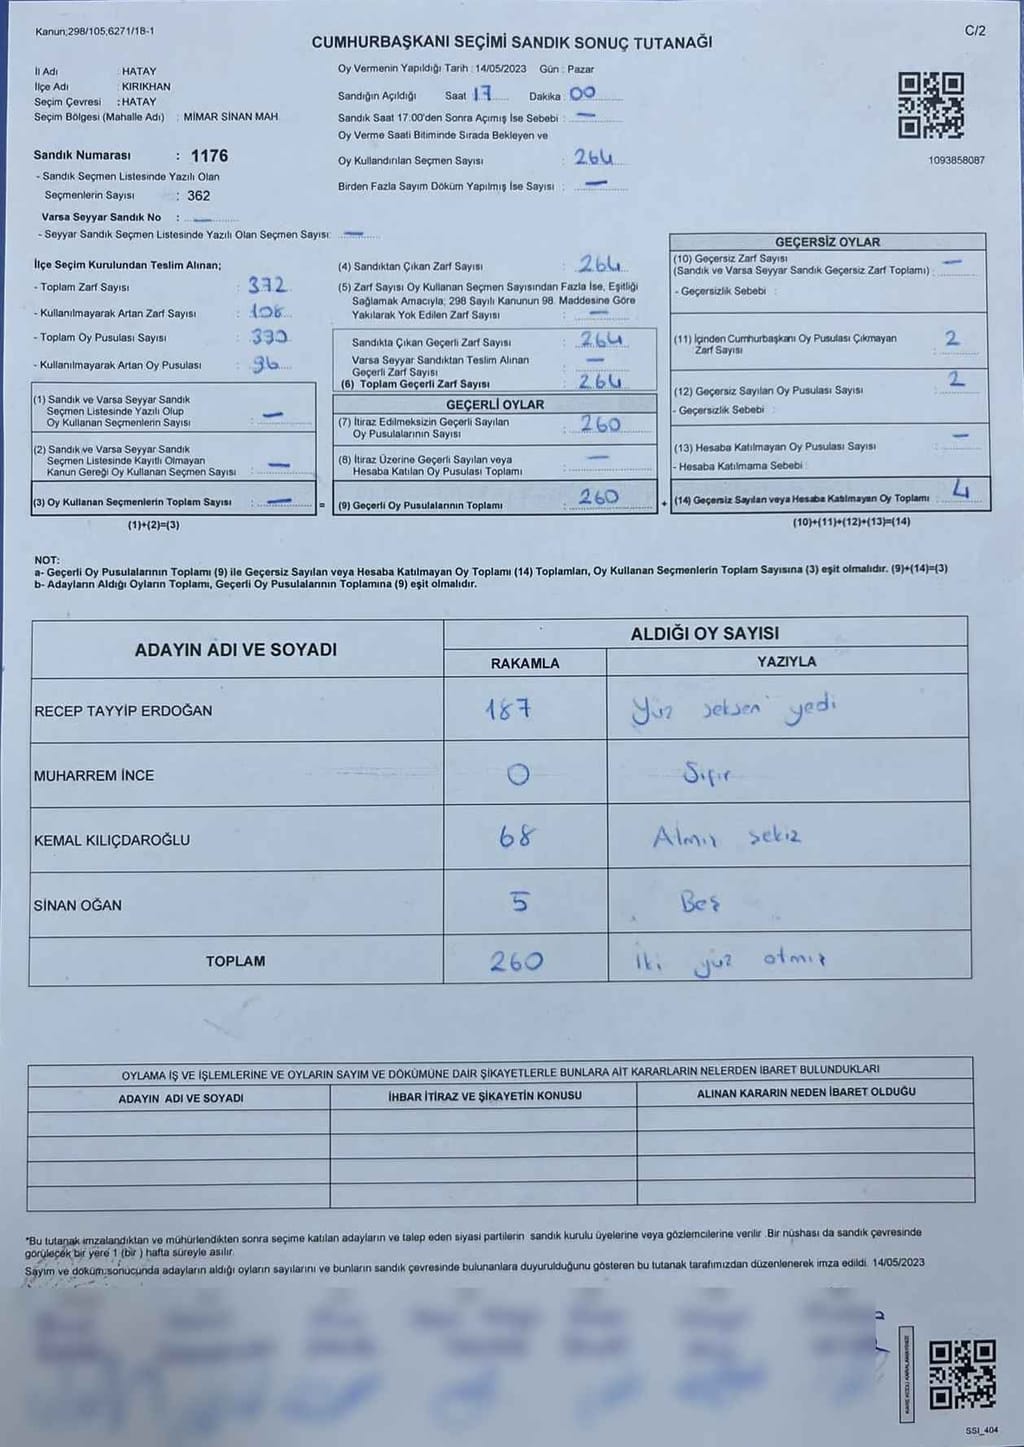 Kanun;298/105;6271/18-1
C/2
CUMHURBAŞKANI SEÇİMİ SANDIK SONUÇ TUTANAĞI
İl Adı : HATAY
İlçe Adı : KIRIKHAN
Seçim Çevresi : HATAY
Seçim Bölgesi (Mahalle Adı) : MİMAR SİNAN MAH.
Sandık Numarası : 1176
- Sandık Seçmen Listesinde Yazılı Olan
Seçmenlerin Sayısı : 362
Varsa Seyyar Sandık No : —
- Seyyar Sandık Seçmen Listesinde Yazılı Olan Seçmen Sayısı: —
Oy Vermenin Yapıldığı Tarih : 14/05/2023 Gün : Pazar
Sandığın Açıldığı Saat 17 Dakika : 00
Sandık Saat 17:00'den Sonra Açımış İse Sebebi : —
Oy Verme Saati Bitiminde Sırada Bekleyen ve
Oy Kullandırılan Seçmen Sayısı : 264
Birden Fazla Sayım Döküm Yapılmış İse Sayısı : —
1093858087
İlçe Seçim Kurulundan Teslim Alınan;
- Toplam Zarf Sayısı : 372
- Kullanılmayarak Artan Zarf Sayısı : 108
- Toplam Oy Pusulası Sayısı : 330
- Kullanılmayarak Artan Oy Pusulası : 96
(1) Sandık ve Varsa Seyyar Sandık
Seçmen Listesinde Yazılı Olup
Oy Kullanan Seçmenlerin Sayısı : —
(2) Sandık ve Varsa Seyyar Sandık
Seçmen Listesinde Kayıtlı Olmayan
Kanun Gereği Oy Kullanan Seçmen Sayısı : —
(3) Oy Kullanan Seçmenlerin Toplam Sayısı : — =
(1)+(2)=(3)
(4) Sandıktan Çıkan Zarf Sayısı : 264
(5) Zarf Sayısı Oy Kullanan Seçmen Sayısından Fazla İse, Eşitliği
Sağlamak Amacıyla; 298 Sayılı Kanunun 98. Maddesine Göre
Yakılarak Yok Edilen Zarf Sayısı : —
Sandıkta Çıkan Geçerli Zarf Sayısı : 264
Varsa Seyyar Sandıktan Teslim Alınan
Geçerli Zarf Sayısı : —
(6) Toplam Geçerli Zarf Sayısı : 264
GEÇERLİ OYLAR
(7) İtiraz Edilmeksizin Geçerli Sayılan
Oy Pusulalarının Sayısı : 260
(8) İtiraz Üzerine Geçerli Sayılan veya
Hesaba Katılan Oy Pusulası Toplamı : —
(9) Geçerli Oy Pusulalarının Toplamı : 260 +
GEÇERSİZ OYLAR
(10) Geçersiz Zarf Sayısı
(Sandık ve Varsa Seyyar Sandık Geçersiz Zarf Toplamı) : —
- Geçersizlik Sebebi :
(11) İçinden Cumhurbaşkanı Oy Pusulası Çıkmayan
Zarf Sayısı : 2
(12) Geçersiz Sayılan Oy Pusulası Sayısı : 2
- Geçersizlik Sebebi :
(13) Hesaba Katılmayan Oy Pusulası Sayısı : —
- Hesaba Katılmama Sebebi :
(14) Geçersiz Sayılan veya Hesaba Katılmayan Oy Toplamı : 4
(10)+(11)+(12)+(13)=(14)
NOT:
a- Geçerli Oy Pusulalarının Toplamı (9) ile Geçersiz Sayılan veya Hesaba Katılmayan Oy Toplamı (14) Toplamları, Oy Kullanan Seçmenlerin Toplam Sayısına (3) eşit olmalıdır. (9)+(14)=(3)
b- Adayların Aldığı Oyların Toplamı, Geçerli Oy Pusulalarının Toplamına (9) eşit olmalıdır.
ADAYIN ADI VE SOYADI
ALDIĞI OY SAYISI
RAKAMLA YAZIYLA
RECEP TAYYİP ERDOĞAN 187 Yüz seksen yedi
MUHARREM İNCE 0 Sıfır
KEMAL KILIÇDAROĞLU 68 Altmış sekiz
SİNAN OĞAN 5 Beş
TOPLAM 260 İki yüz atmış
OYLAMA İŞ VE İŞLEMLERİNE VE OYLARIN SAYIM VE DÖKÜMÜNE DAİR ŞİKAYETLERLE BUNLARA AİT KARARLARIN NELERDEN İBARET BULUNDUKLARI
ADAYIN ADI VE SOYADI İHBAR İTİRAZ VE ŞİKAYETİN KONUSU ALINAN KARARIN NEDEN İBARET OLDUĞU
*Bu tutanak imzalandıktan ve mühürlendikten sonra seçime katılan adayların ve talep eden siyasi partilerin sandık kurulu üyelerine veya gözlemcilerine verilir. Bir nüshası da sandık çevresinde
görülecek bir yere 1 (bir) hafta süreyle asılır.
Sayım ve döküm sonucunda adayların aldığı oyların sayılarını ve bunların sandık çevresinde bulunanlara duyurulduğunu gösteren bu tutanak tarafımızdan düzenlenerek imza edildi. 14/05/2023
SSI_404